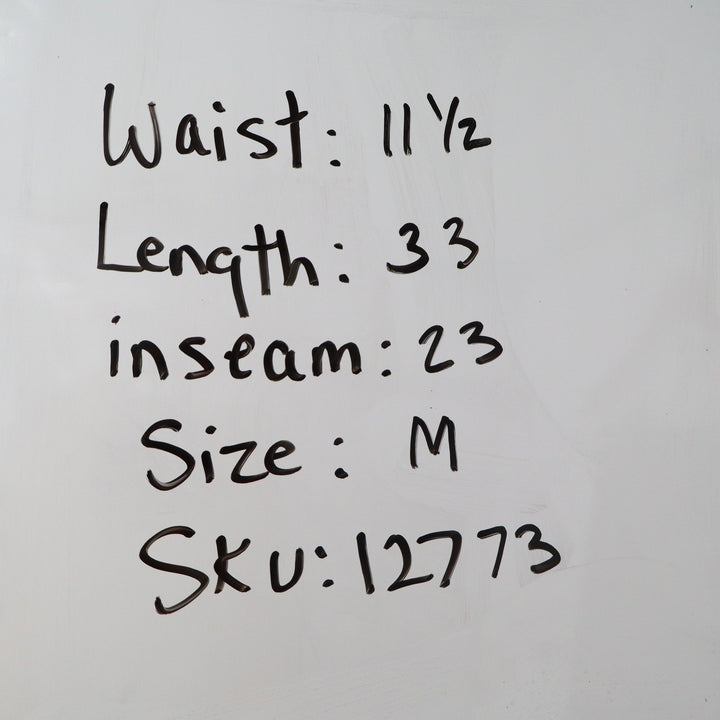 Waist: 11 ½
Length: 33
inseam: 23
Size: M
SKU: 12773